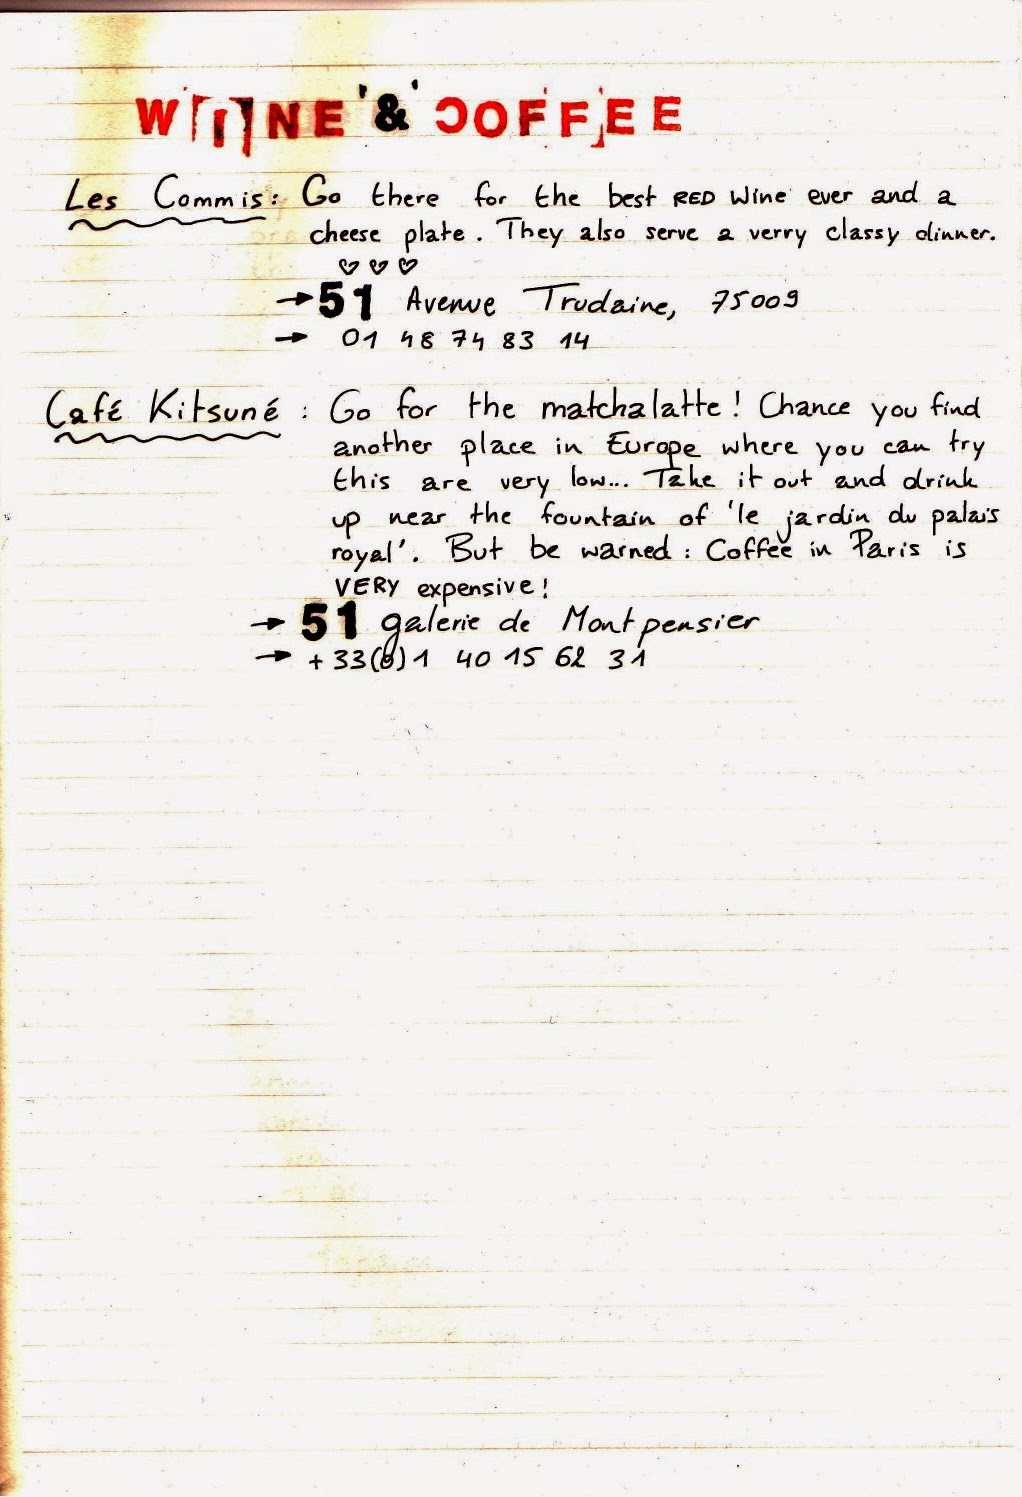 WINE & COFFEE
Les Commis: Go there for the best RED wine ever and a
cheese plate. They also serve a verry classy dinner.
♡ ♡ ♡
→ 51 Avenue Trudaine, 75009
→ 01 48 74 83 14
Café Kitsuné : Go for the matchalatte! Chance you find
another place in Europe where you can try
this are very low... Take it out and drink
up near the fountain of 'le jardin du palais
royal'. But be warned : Coffee in Paris is
VERY expensive!
→ 51 galerie de Montpensier
→ +33(0)1 40 15 62 31